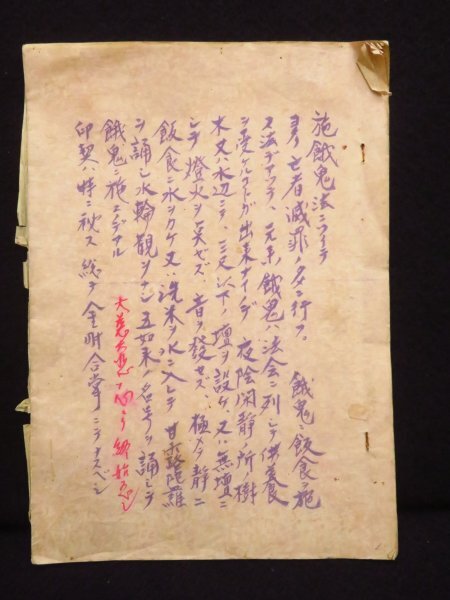 施餓鬼法ニツイテ
ヨク亡者滅罪ノタメ行フ。　餓鬼ニ飯食ヲ施
ス法デアツテ、元来餓鬼ハ法会ニ列シテ供養
ヲ受ケルコトガ出来ナイデ　夜陰閑静ノ所ノ樹
木又ハ水辺ニテ、三尺以下ノ壇ヲ設ケ、又ハ無壇ニ
シテ燈火ヲ点ゼズ、音ヲ発セズ、極メテ静ニ
飯食ニ水ヲカケ又ハ洗米ヲ水ニ入レテ　甘露陀羅
ヲ誦シ水輪観ヲナシ五如来ノ名号ヲ誦シテ
餓鬼ニ施スデアル　大慈大悲ノ心ヲ
印契ハ時ニ秘ス　総テ金剛合掌ニテナスベシ